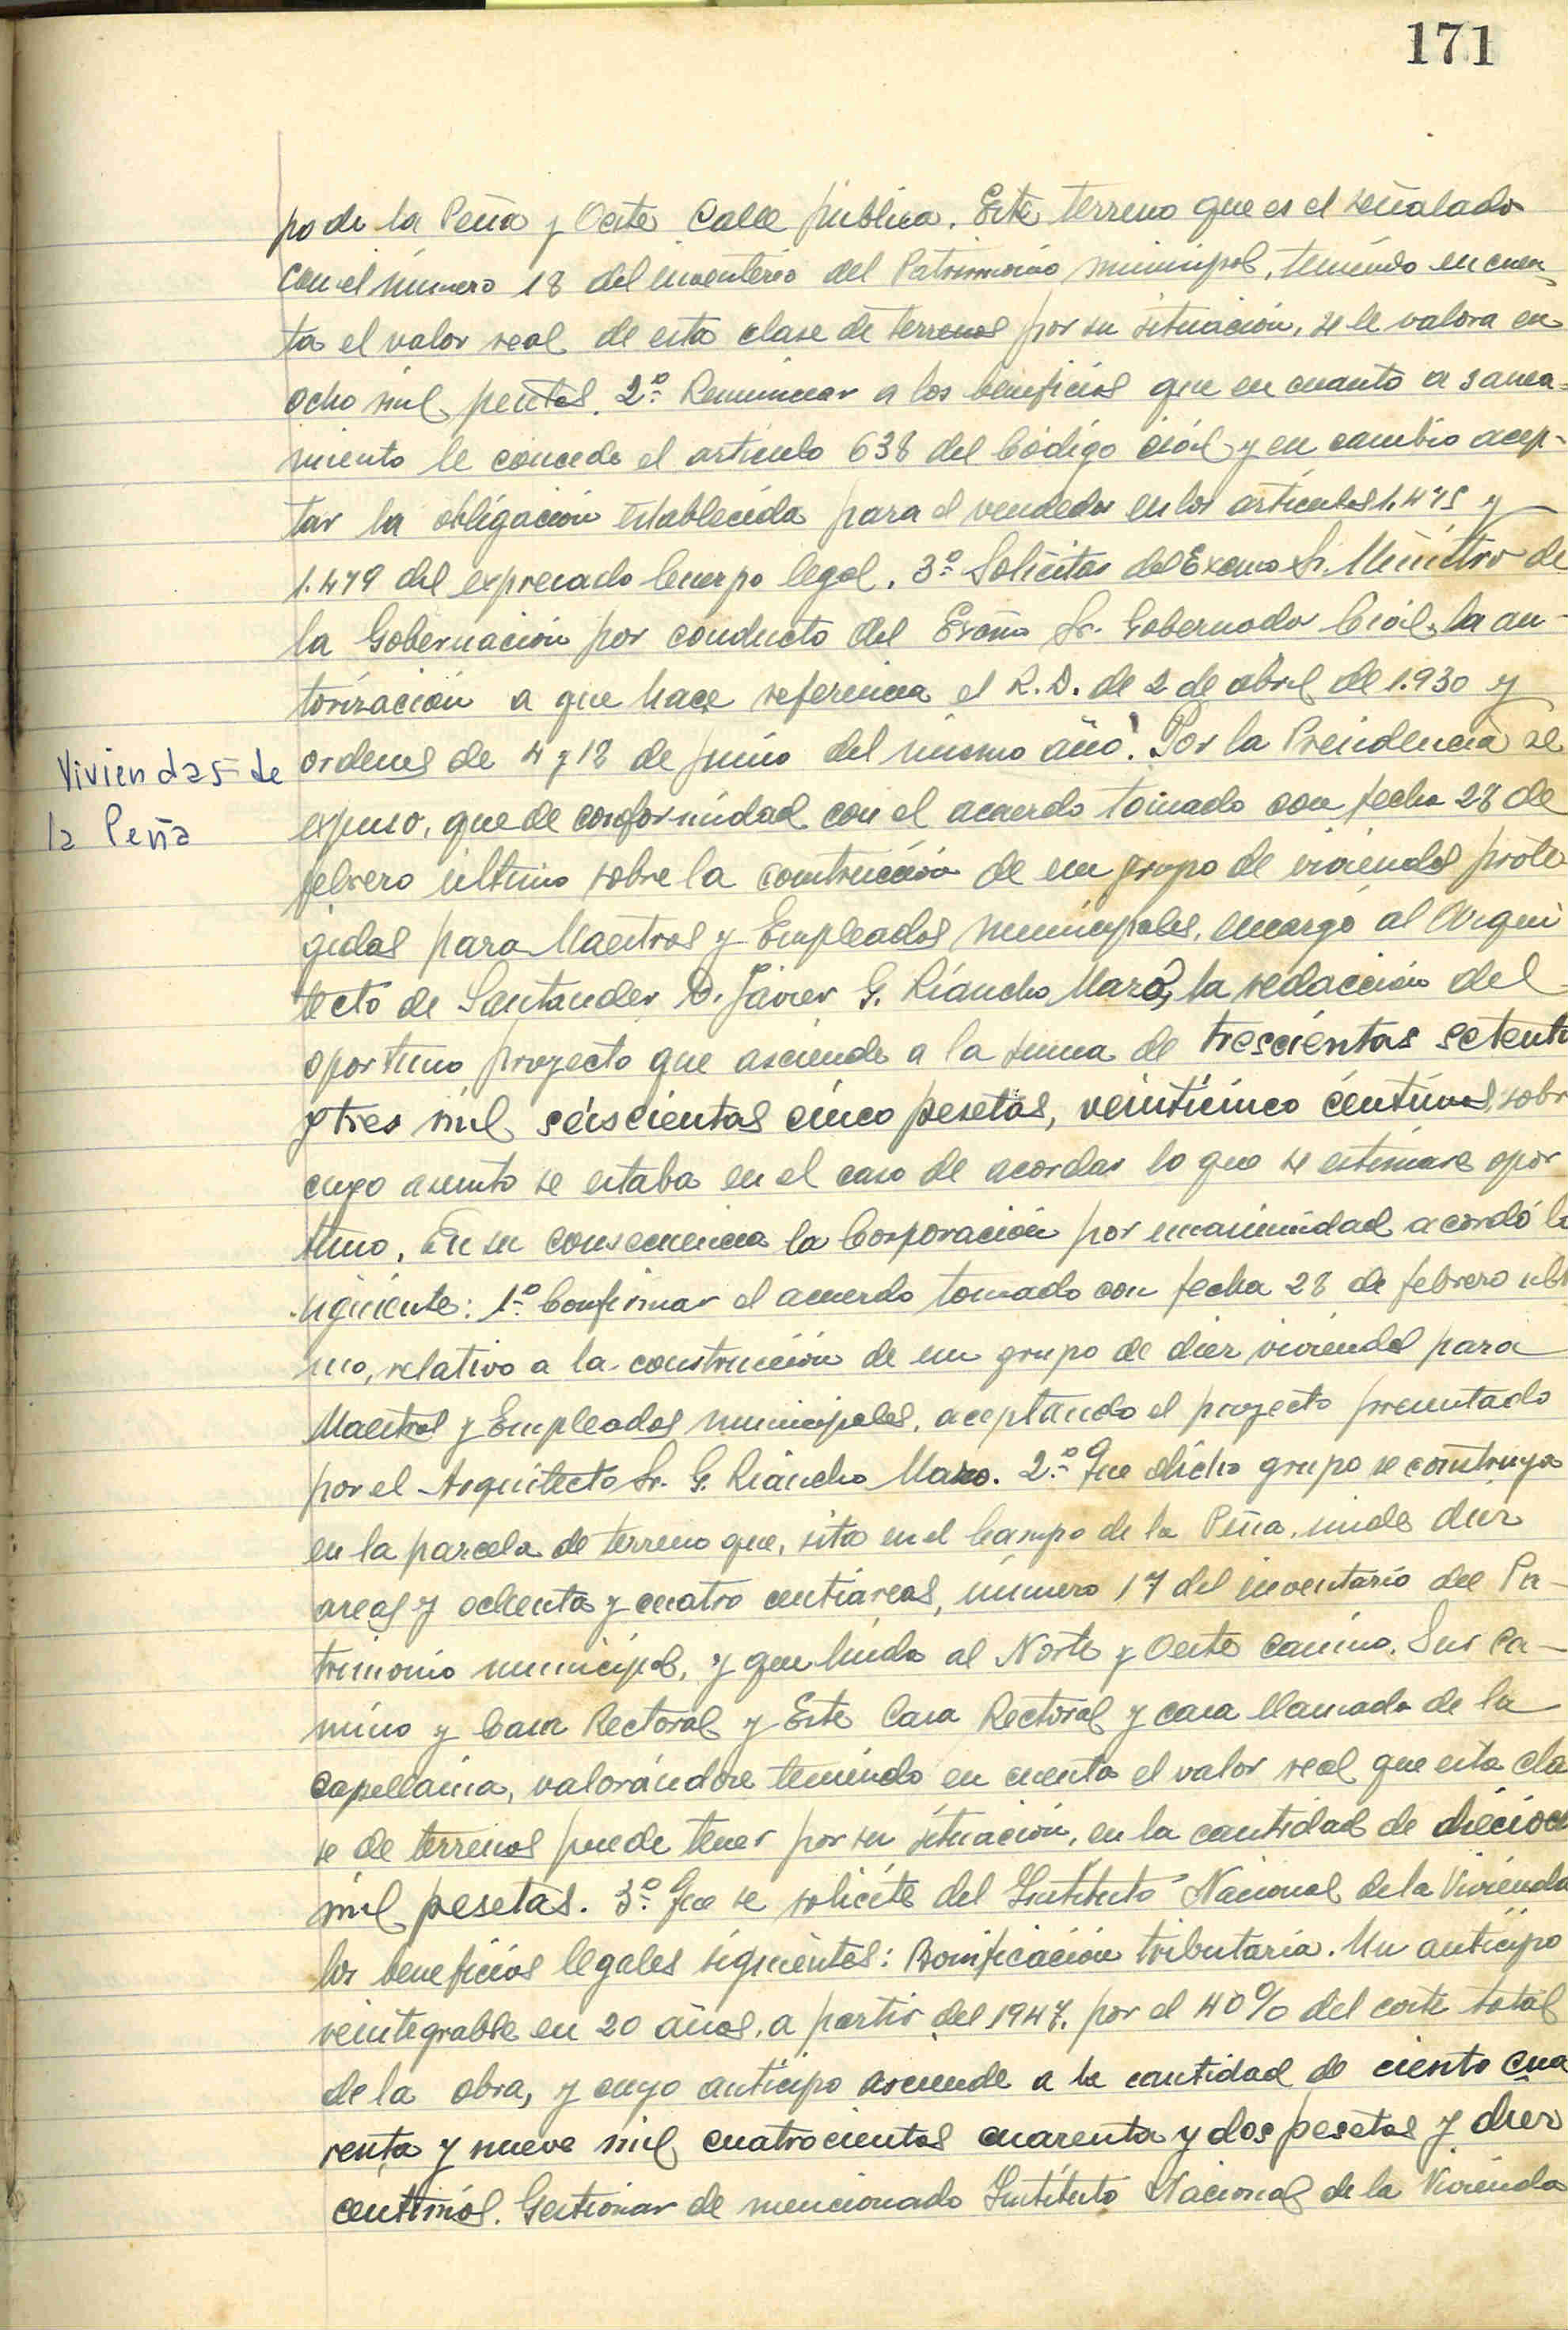 171
po de la Peña y Oeste Calle pública. Este terreno que es el señalado
con el número 18 del inventario del Patrimonio municipal, teniendo en cuen
ta el valor real de esta clase de terrenos por su situación, se le valora en
ocho mil pesetas. 2º Renunciar a los beneficios que en cuanto a sanea=
miento le concede el artículo 638 del Código civil y en cambio acep-
tar la obligación establecida para el vendedor en los artículos 1.475 y
1.479 del expresado Cuerpo legal. 3º Solicitar del Excmo Sr. Ministro de
la Gobernación por conducto del Excmo Sr. Gobernador Civil, la au-
torización a que hace referencia el R.D. de 2 de abril de 1.930 y
ordenes de 4 y 12 de junio del mismo año. Por la Presidencia se
Viviendas de
la Peña
expuso, que de conformidad con el acuerdo tomado con fecha 28 de
febrero último sobre la construcción de un grupo de viviendas prote
gidas para Maestros y Empleados municipales, encargó al Arqui
tecto de Santander D. Javier G. Riancho Mazo, la redacción del
oportuno proyecto que asciende a la suma de trescientas setenta
y tres mil seiscientas cinco pesetas, veinticinco céntimos, sobre
cuyo asunto se estaba en el caso de acordar lo que se estimare opor
tuno. En su consecuencia la Corporación por unanimidad acordó lo
siguiente: 1º Confirmar el acuerdo tomado con fecha 28 de febrero últi
mo, relativo a la construcción de un grupo de diez viviendas para
Maestros y Empleados municipales, aceptando el proyecto presentado
por el Arquitecto Sr. G. Riancho Mazo. 2º Que dicho grupo se construya
en la parcela de terreno que, sita en el Campo de la Peña, mide diez
areas y ochenta y cuatro centiáreas, número 17 del inventario del Pa-
trimonio municipal, y que linda al Norte y Oeste camino. Sur ca-
mino y Casa Rectoral y Este Casa Rectoral y casa llamada de la
capellanía, valorándose teniendo en cuenta el valor real que esta cla
se de terrenos puede tener por su situación, en la cantidad de dieciocho
mil pesetas. 3º Que se solicite del Instituto Nacional de la Vivienda
los beneficios legales siguientes: Bonificación tributaria. Un anticipo
reintegrable en 20 años, a partir del 1947, por el 40% del coste total
de la obra, y cuyo anticipo asciende a la cantidad de ciento cua
renta y nueve mil cuatrocientas cuarenta y dos pesetas y diez
centimos. Gestionar de mencionado Instituto Nacional de la Vivienda